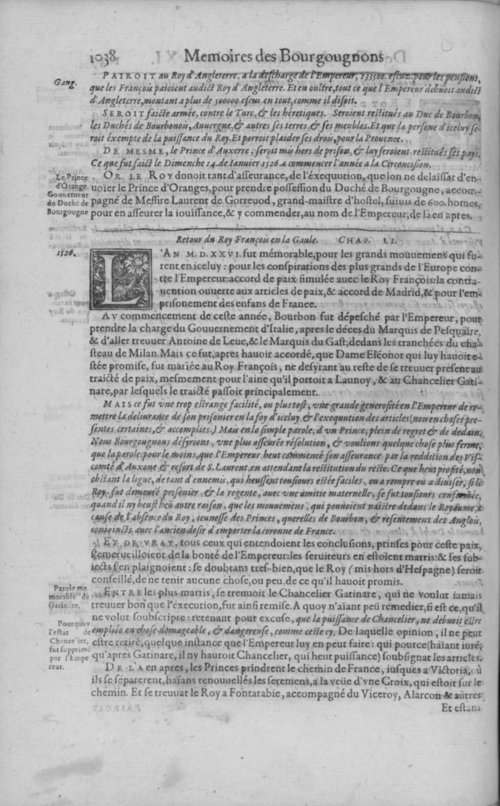 1038 Memoires des Bourgougnons
Gang.
PAIROIT au Roy d'Angleterre, a la descharge de l'Empereur, 133500. escuz, pour les pensions,
que les François paioient audict Roy d'Angleterre. Et en oultre, tout ce que l'Empereur debuoit audict
d'Angleterre, montant a plus de 500000. escus en tout, comme il disoit.
SEROIT faicte armée, contre le Turc, & les hérétiques. Seroient restitués au Duc de Bourbon,
les Duchés de Bourbonois, Auuergne, & autres ses terres, & ses meubles. Et que sa persone d'iceluy se-
roit éxempte de la puissance du Roy. Et porroit plaider ses drois, pour la Prouence.
DE MESME, le Prince d'Auxerre, seroit mis hors de prison, & luy seroient restitués ses païs.
Ce que fut faict le Dimenche 14. de Ianuier 1526. a commencer l'année a la Circoncision.
Le Prince
d'Orange
Gouuerneur
du Duché de
Bourgougne
OR LE ROY donoit tant d'asseurance, de l'éxequution, que lon ne delaissat d'en-
uoier le Prince d'Oranges, pour prendre possession du Duché de Bourgougne, accom-
pagné de Messire Laurent de Gorreuod, grand-maistre d'hostel, suiuis de 600. homes,
pour en asseurer la iouissance, & y commender, au nom de l'Empereur, de là en apres.
Retour du Roy François en la Gaule. CHAP. LI.
1526.
L'AN M. D. XXVI. fut mémorable, pour les grands mouuemens qui fu-
rent en iceluy: pour les conspirations des plus grands de l'Europe con-
tre l'Empereur: accord de paix simulée auec le Roy François: la contra-
uention ouuerte aux articles de paix, & accord de Madrid, & pour l'em-
prisonement des enfans de France.
AV commencement de ceste année, Bourbon fut dépesché par l'Empereur, pour
prendre la charge du Gouuernement d'Italie, apres le déces du Marquis de Pesquaire,
& d'aller treuuer Antoine de Leue, & le Marquis du Gast, dedans les tranchées du cha-
steau de Milan. Mais ce fut, apres hauoir accordé, que Dame Eléonor qui luy hauoit e-
stée promise, fut mariée au Roy François, ne desyrant au reste de se treuuer présent au
traicté de paix, mesmement pour l'aine qu'il portoit a Launoy, & au Chancelier Gati-
nare, par lesquels le traicté passoit principalement.
MAIS ce fut vne trop estrange facilité, ou plustost, vne grande generosité en l'Empereur de re-
mettre la deliurance de son prisonier en la foy d'iceluy & l'exequution des articles (non en choses pre-
sentes certaines, & accomplies.) Mais en la simple parole, d'vn Prince, plein de regret & de dedain.
Nous Bourgougnons désyrions, vne plus asseurée résolution, & voulions quelque chose plus ferme,
que la parole: pour le moins, que l'Empereur heut commencé son asseurance par la reddition des Vi-
comté d'Auxone & resort de S. Laurent, en attendant la restitution du reste. Ce que heut profité, non
obstant la ligue, de tant d'ennemis, qui heussent tousiours estée faciles, ou a rompre ou a diuiser, si le
Roy fut demeuré prisonier, & la regente, auec vne amitié maternelle, se fut tousiours conformée,
quand il n'y heust heu autre raison, que les mouuemens, qui pouuoient naistre dedans le Royaume a
cause de l'absence du Roy, ieunesse des Princes, querelles de Bourbon, & resentemens des Anglois,
conioincts auec l'ancien desir d'emporter la coronne de France.
ET DE VRAY, tous ceux qui entendoient les conclusions, prinses pour ceste paix,
s'emerueilloient de la bonté de l'Empereur: les seruiteurs en estoient marris: & ses sub-
iects s'en plaignoient: se doubtans tres-bien, que le Roy (mis hors d'Hespagne) seroit
conseillé, de ne tenir aucune chose, ou peu de ce qu'il hauoit promis.
Parole me-
morable de
Gatinare.
Pourquoy
l'estat de
Chancelier,
fut supprimé
par l'Empe-
reur.
ENTRE les plus marris, se treuuoit le Chancelier Gatinare, qui ne voulut iamais
treuuer bon que l'éxecution, fut ainsi remise. A quoy n'aiant peu remedier, si est ce, qu'il
ne volut soubscripre: retenant pour excuse, que la puissance de Chancelier, ne debuoit estre
emploiée en chose domageable, & dangereuse, comme ceste cy. De laquelle opinion, il ne peut
estre retiré, quelque instance que l'Empereur luy en peut faire: qui pource (haiant iuré,
qu'apres Gatinare, il n'y hauroit Chancelier, qui heut puissance) soubsignat les articles.
DE LA en apres, les Princes prindrent le chemin de France, iusques a Victoria, où
ils se séparerent, haians renouuellés les seremens, a la veüe d'vne Croix, qui estoit sur le
chemin. Et se treuuat le Roy a Fontarabie, accompagné du Viceroy, Alarcon & autres
Et estans